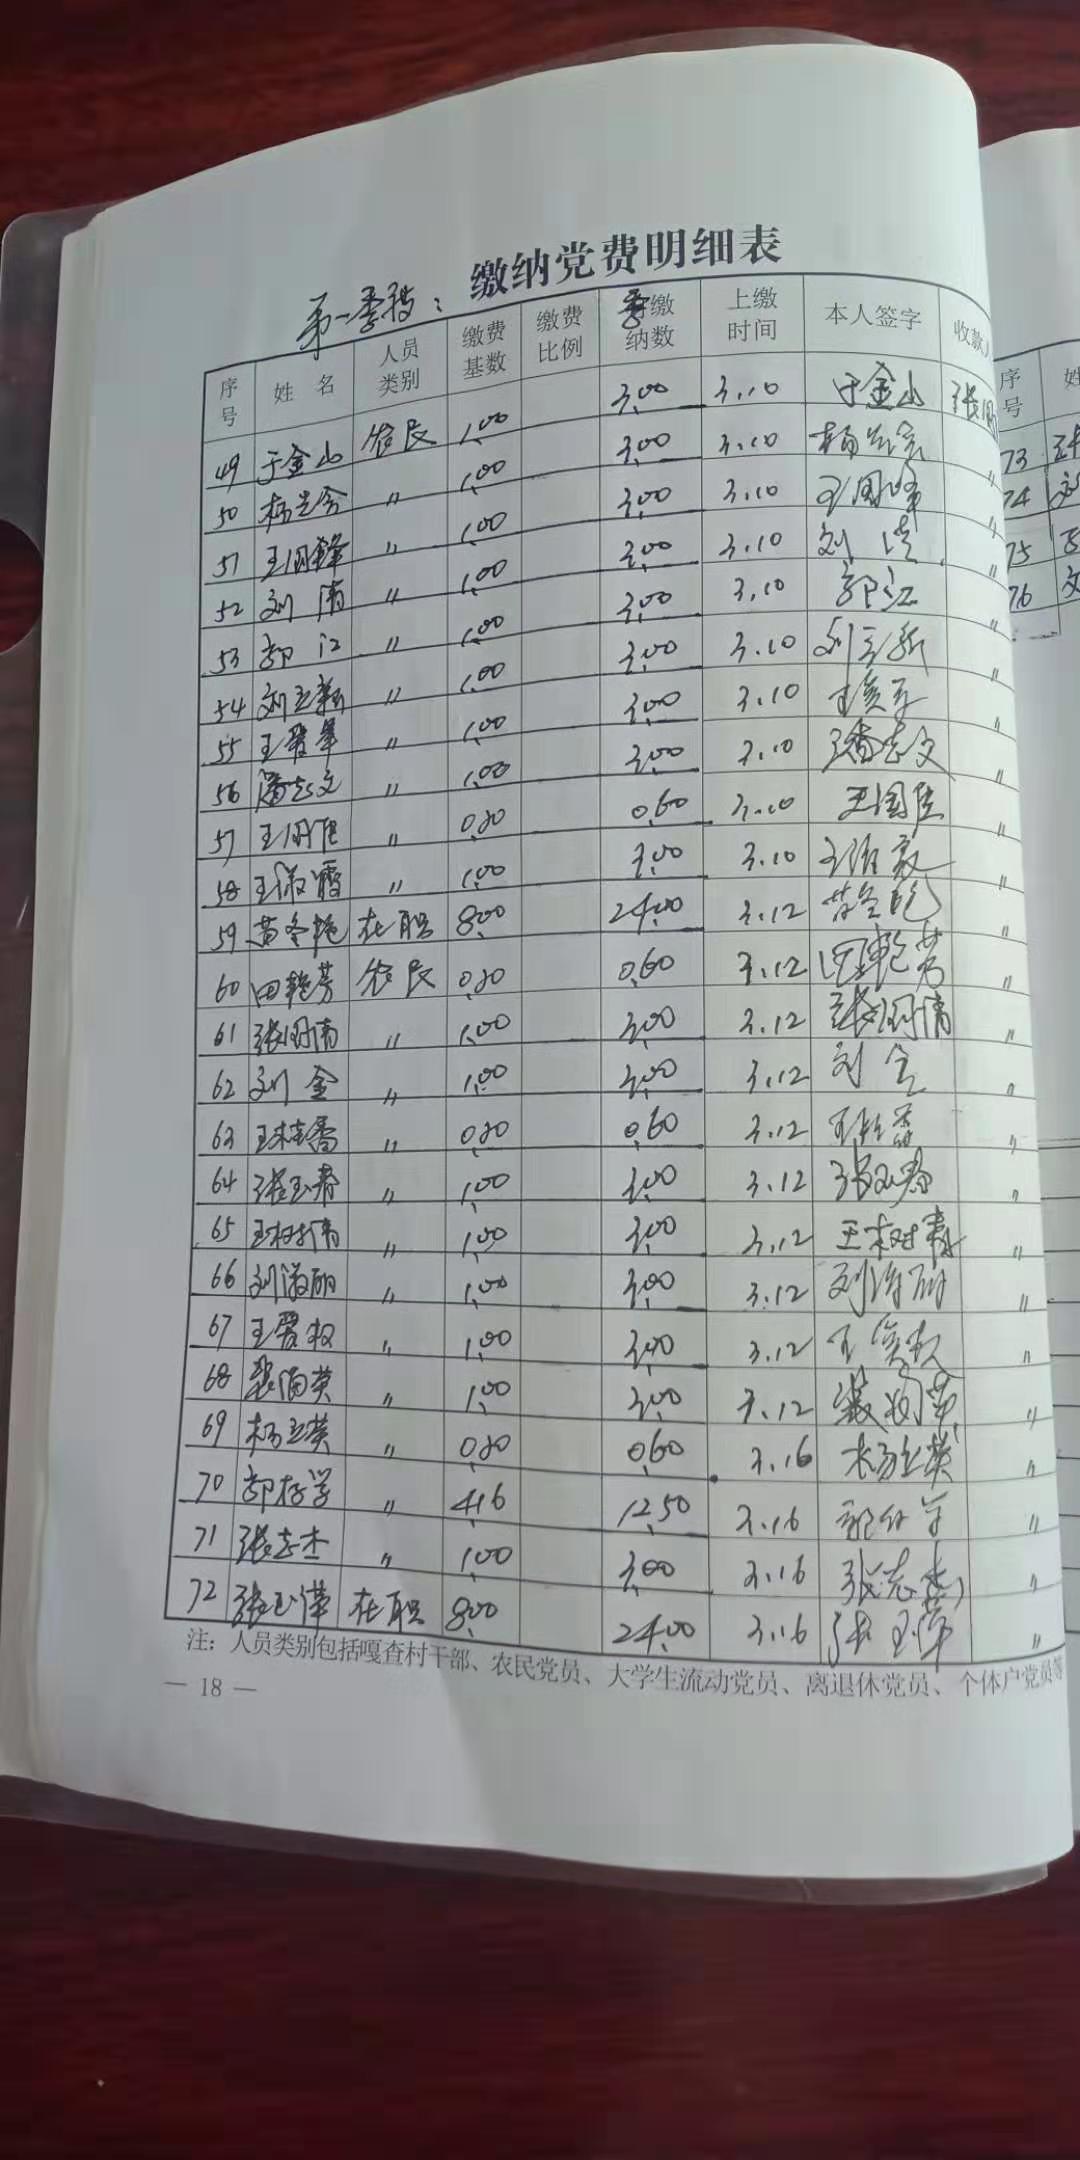 缴纳党费明细表
第一季度：
序号 姓名 人员类别 缴费基数 缴费比例 季缴纳数 上缴时间 本人签字 收款人
49 于金山 农民 1.00 3.00 3.10 于金山
50 〃 1.00 3.00 3.10 〃
51 王国锋 〃 1.00 3.00 3.10 〃
52 刘清 〃 1.00 3.00 3.10 刘 〃
53 郭江 〃 1.00 3.00 3.10 郭江 〃
54 刘立新 〃 1.00 3.00 3.10 刘立新 〃
55 王 〃 1.00 3.00 3.10 王 〃
56 潘志文 〃 1.00 3.00 3.10 潘志文 〃
57 王国臣 〃 0.20 0.60 3.10 王国臣 〃
58 王淑霞 〃 1.00 3.00 3.10 〃
59 在职 8.00 24.00 3.12 〃
60 田艳芳 农民 0.20 0.60 3.12 田艳芳 〃
61 张国清 〃 1.00 3.00 3.12 张国清 〃
62 刘金 〃 1.00 3.00 3.12 刘金 〃
63 王桂香 〃 0.20 0.60 3.12 〃
64 张玉春 〃 1.00 3.00 3.12 〃
65 王树清 〃 1.00 3.00 3.12 王树清 〃
66 刘淑丽 〃 1.00 3.00 3.12 刘淑丽 〃
67 王 〃 1.00 3.00 3.12 王 〃
68 〃 1.00 3.00 3.12 〃
69 杨立英 〃 0.20 0.60 3.16 杨立英 〃
70 郭存学 〃 4.16 12.50 3.16 〃
71 张志杰 〃 1.00 3.00 3.16 张志杰 〃
72 张玉萍 在职 8.00 24.00 3.16 张玉萍 〃
注：人员类别包括嘎查村干部、农民党员、大学生流动党员、离退休党员、个体户党员等
— 18 —
序号
73
74
75
76